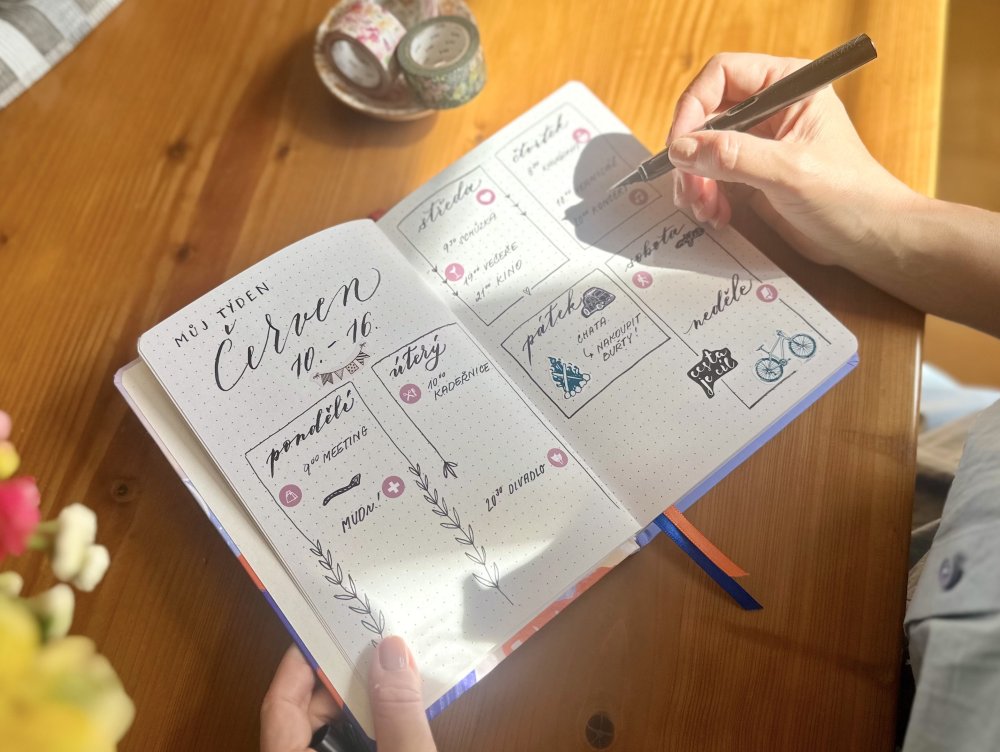 MŮJ TÝDEN
Červen
10. - 16.
pondělí
9⁰⁰ MEETING
MUDR!
úterý
10⁰⁰
KADEŘNICE
20³⁰ DIVADLO
středa
9³⁰ SCHŮZKA
19⁰⁰ VEČEŘE
21⁰⁰ KINO
čtvrtek
20⁰⁰ KONCERT
pátek
CHATA
↳ NAKOUPIT
BUŘTY!
sobota
neděle
cesta
je cíl